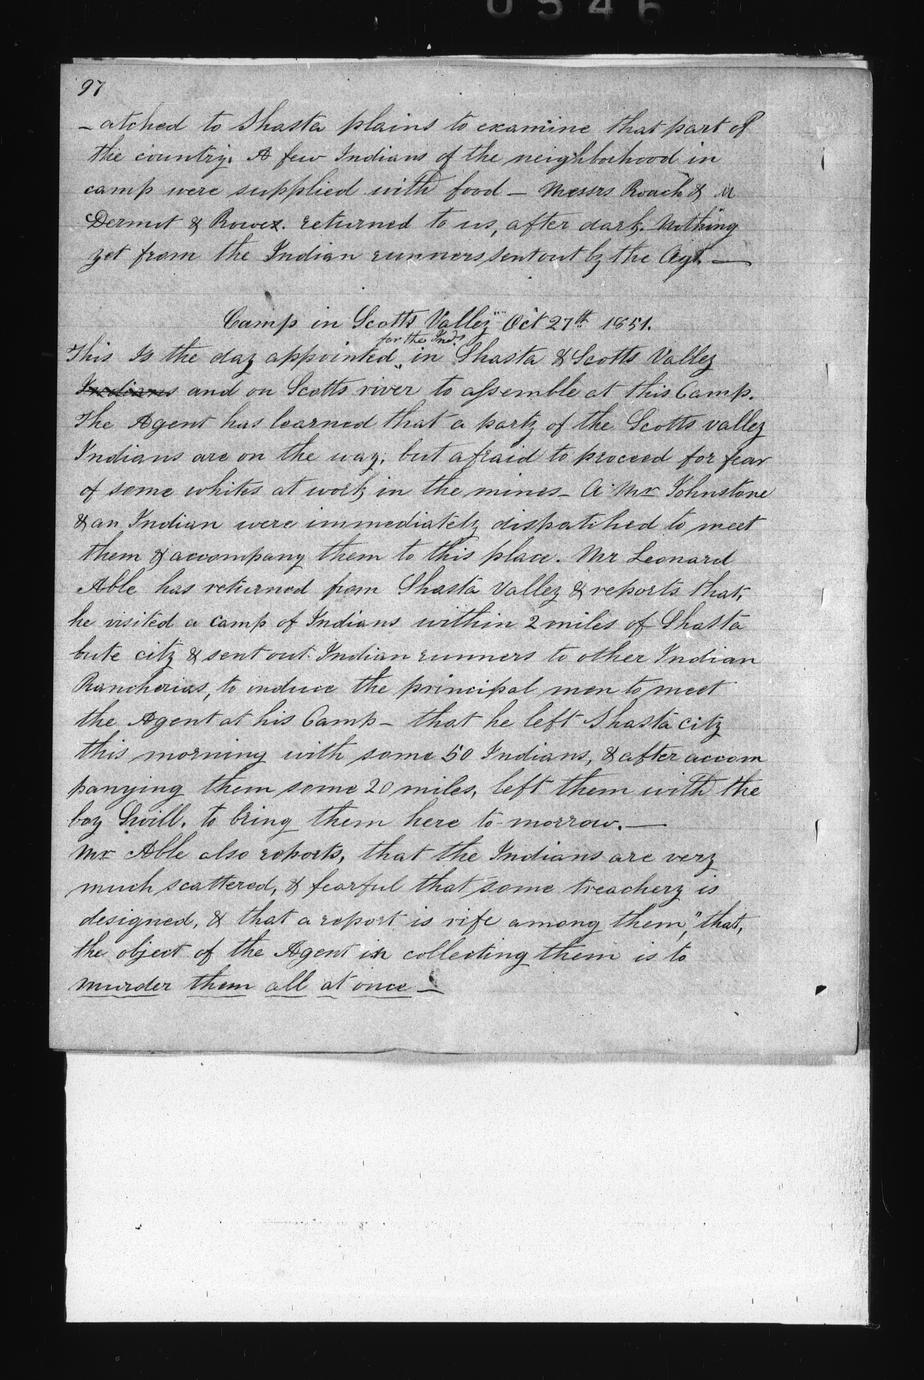 0546
97
-atched to Shasta plains to examine that part of
the country. A few Indians of the neighborhood in
camp were supplied with food - Messrs Roach & M
cDermit & Rowez. returned to us, after dark. Nothing
yet from the Indian runners sent out by the Agt. —
Camp in Scotts Valley Oct 27th 1851.
for the Inds
This Is the day appointed in Shasta & Scotts Valley
Indians and on Scotts river to assemble at this Camp.
The Agent has learned that a party of the Scotts valley
Indians are on the way, but afraid to proceed for fear
of some whites at work in the mines - A Mr Johnstone
& an Indian were immediately dispatched to meet
them & accompany them to this place. Mr Leonard
Able has returned from Shasta Valley & reports that,
he visited a camp of Indians within 2 miles of Shasta
bute city & sent out Indian runners to other Indian
Rancherias, to induce the principal men to meet
the Agent at his Camp - that he left Shasta city
this morning with some 50 Indians, & after accom
panying them some 20 miles, left them with the
boy Swill, to bring them here to-morrow. —
Mr Able also reports, that the Indians are very
much scattered, & fearful that some treachery is
designed, & that a report is rife among them," that,
the object of the Agent in collecting them is to
murder them all at once —